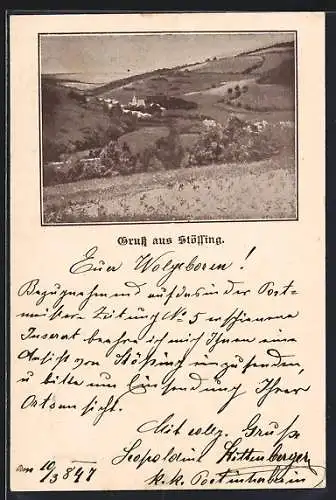 Gruß aus Stössing.
Euer Wolgeboren!
Bezugnehmend auf das in der Post-
meister-Zeitung No 5 erschienene
Inserat beehre ich mich Ihnen eine
Ansicht von Stössing einzusenden,
u bitte um Einsendung Ihrer
Ortsansicht.
Mit collg. Gruße
Leopoldine Hittenberger
k. k. Postinhaberin
10/3 897